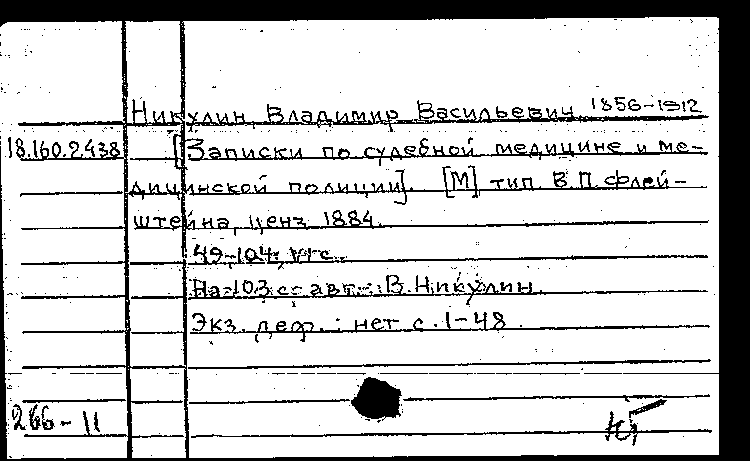 Никулин, Владимир Васильевич, 1856-1912
18.160.2.438 [Записки по судебной медицине и ме-
дицинской полиции]. [М] тип. В.П. Флей-
штейна, ценз. 1884.
49-104, с.
На 103 с. авт.: В. Никулин.
Экз. деф.: нет с. 1-48.
266-11